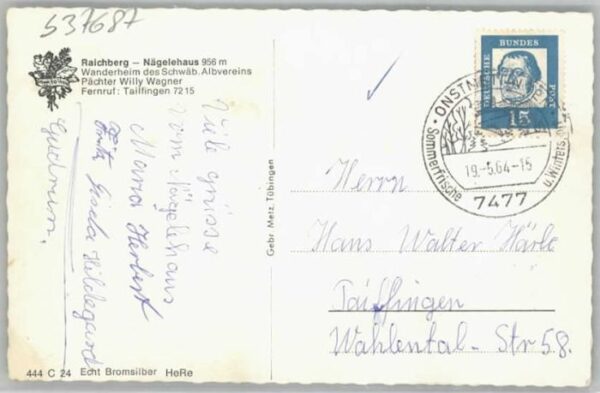 537687
Raichberg – Nägelehaus 956 m
Wanderheim des Schwäb. Albvereins
Pächter Willy Wagner
Fernruf: Tailfingen 7215
Viele Grüsse
vom Nägelehaus
Maria Herbert
Gisela Hildegard
Gudrun.
Gebr. Metz, Tübingen
444 C 24 Echt Bromsilber HeRe
DEUTSCHE BUNDES POST
15
ONSTM
19.-5.64-15
Sommerfrische u. Winters
7477
Herrn
Hans Walter Härle
Taiffingen
Wahlental-Str 58.